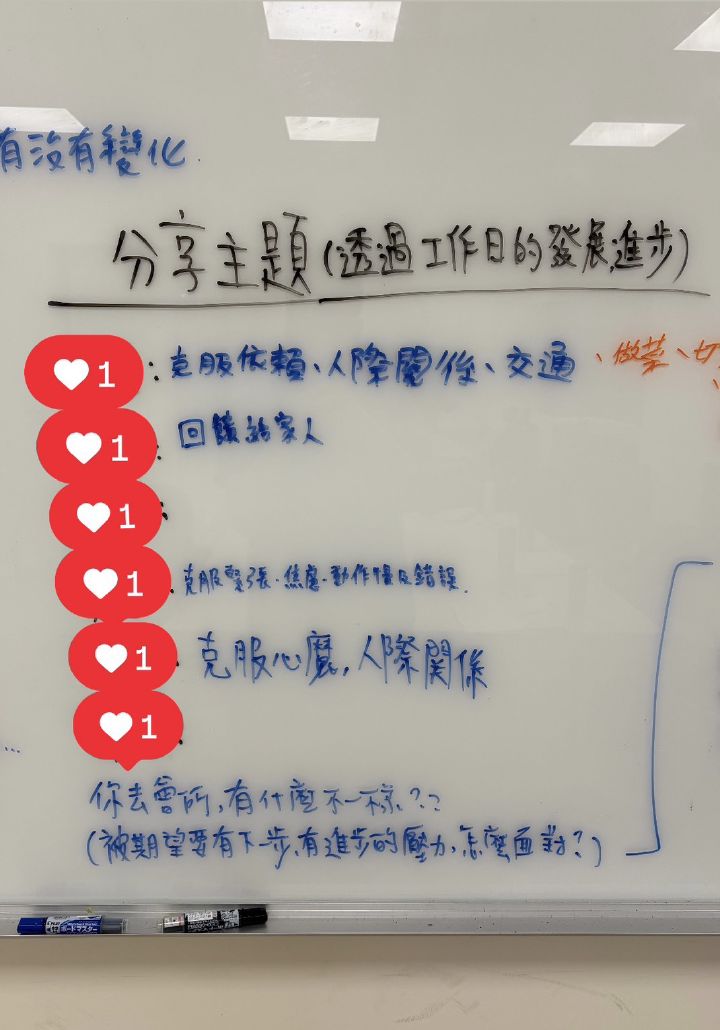 有沒有變化
分享主題(透過工作日的發展、進步)
1 : 克服依賴、人際關係、交通、做菜、切
1 : 回饋給家人
1 :
1 克服緊張.焦慮.動作慢及錯誤.
1 克服心魔,人際關係
1
你去會所,有什麼不一樣??
(被期望要有下一步,有進步的壓力,怎麼面對?)
ボードマスター